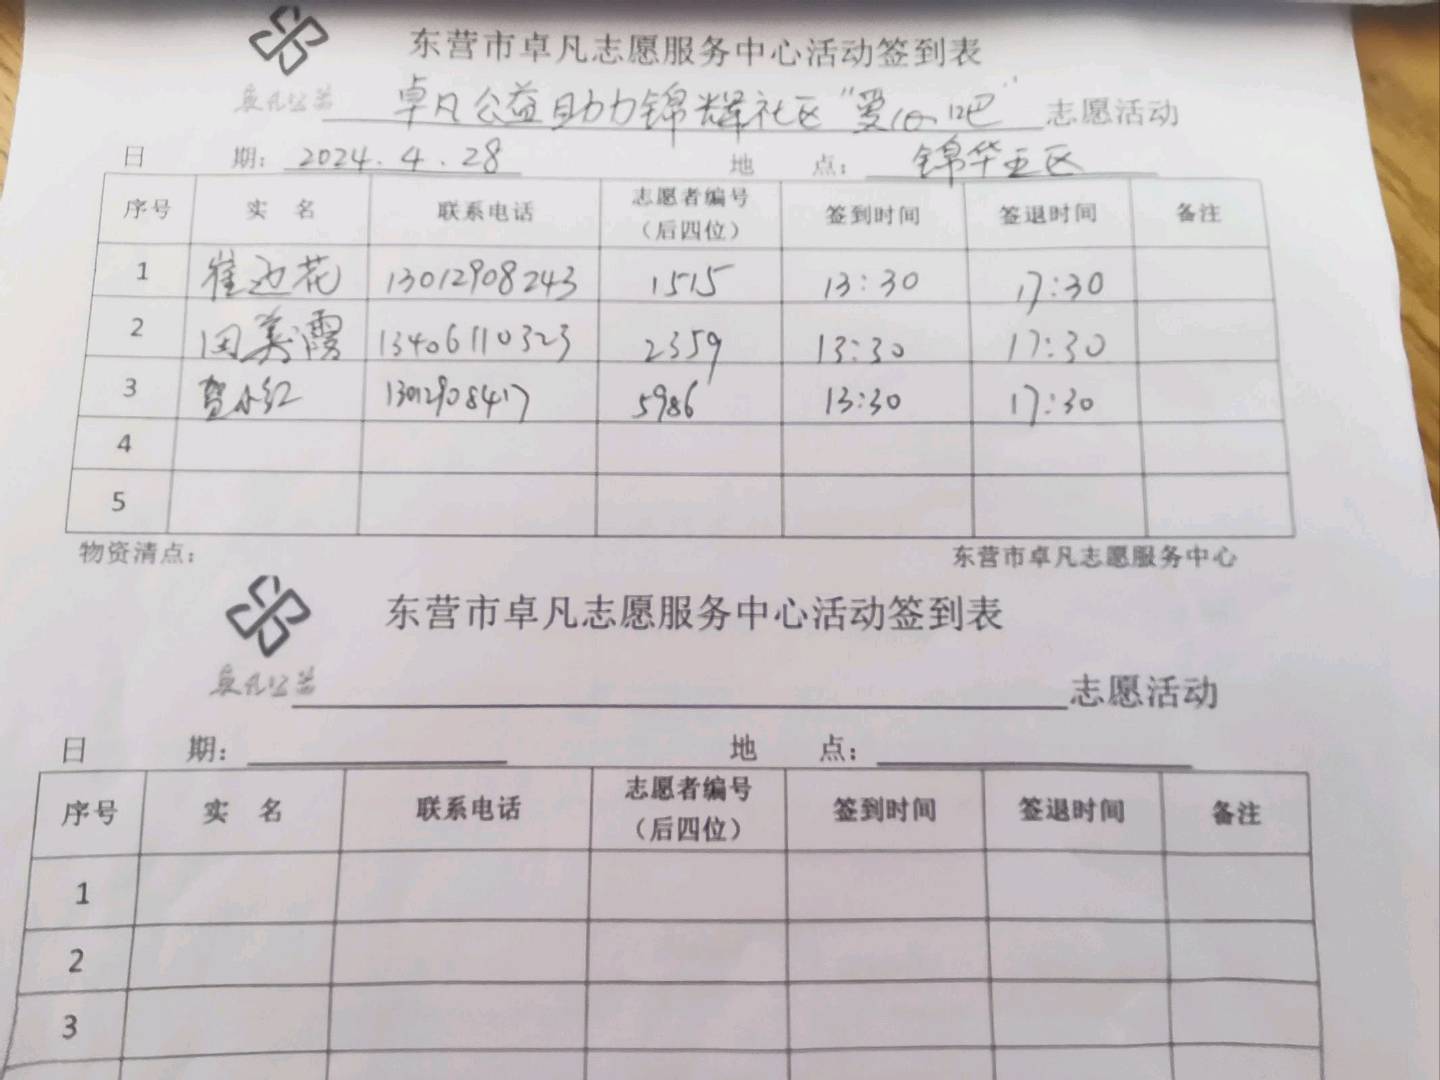 东营市卓凡志愿服务中心活动签到表
卓凡公益
卓凡公益助力锦辉社区“爱心吧”志愿活动
日 期：2024.4.28 地 点：锦华五区
序号 实 名 联系电话 志愿者编号（后四位） 签到时间 签退时间 备注
1 崔迎花 13012908243 1515 13:30 17:30
2 田美霞 13406110323 2359 13:30 17:30
3 贺小红 13012908417 5986 13:30 17:30
4
5
物资清点： 东营市卓凡志愿服务中心
东营市卓凡志愿服务中心活动签到表
卓凡公益
志愿活动
日 期： 地 点：
序号 实 名 联系电话 志愿者编号（后四位） 签到时间 签退时间 备注
1
2
3